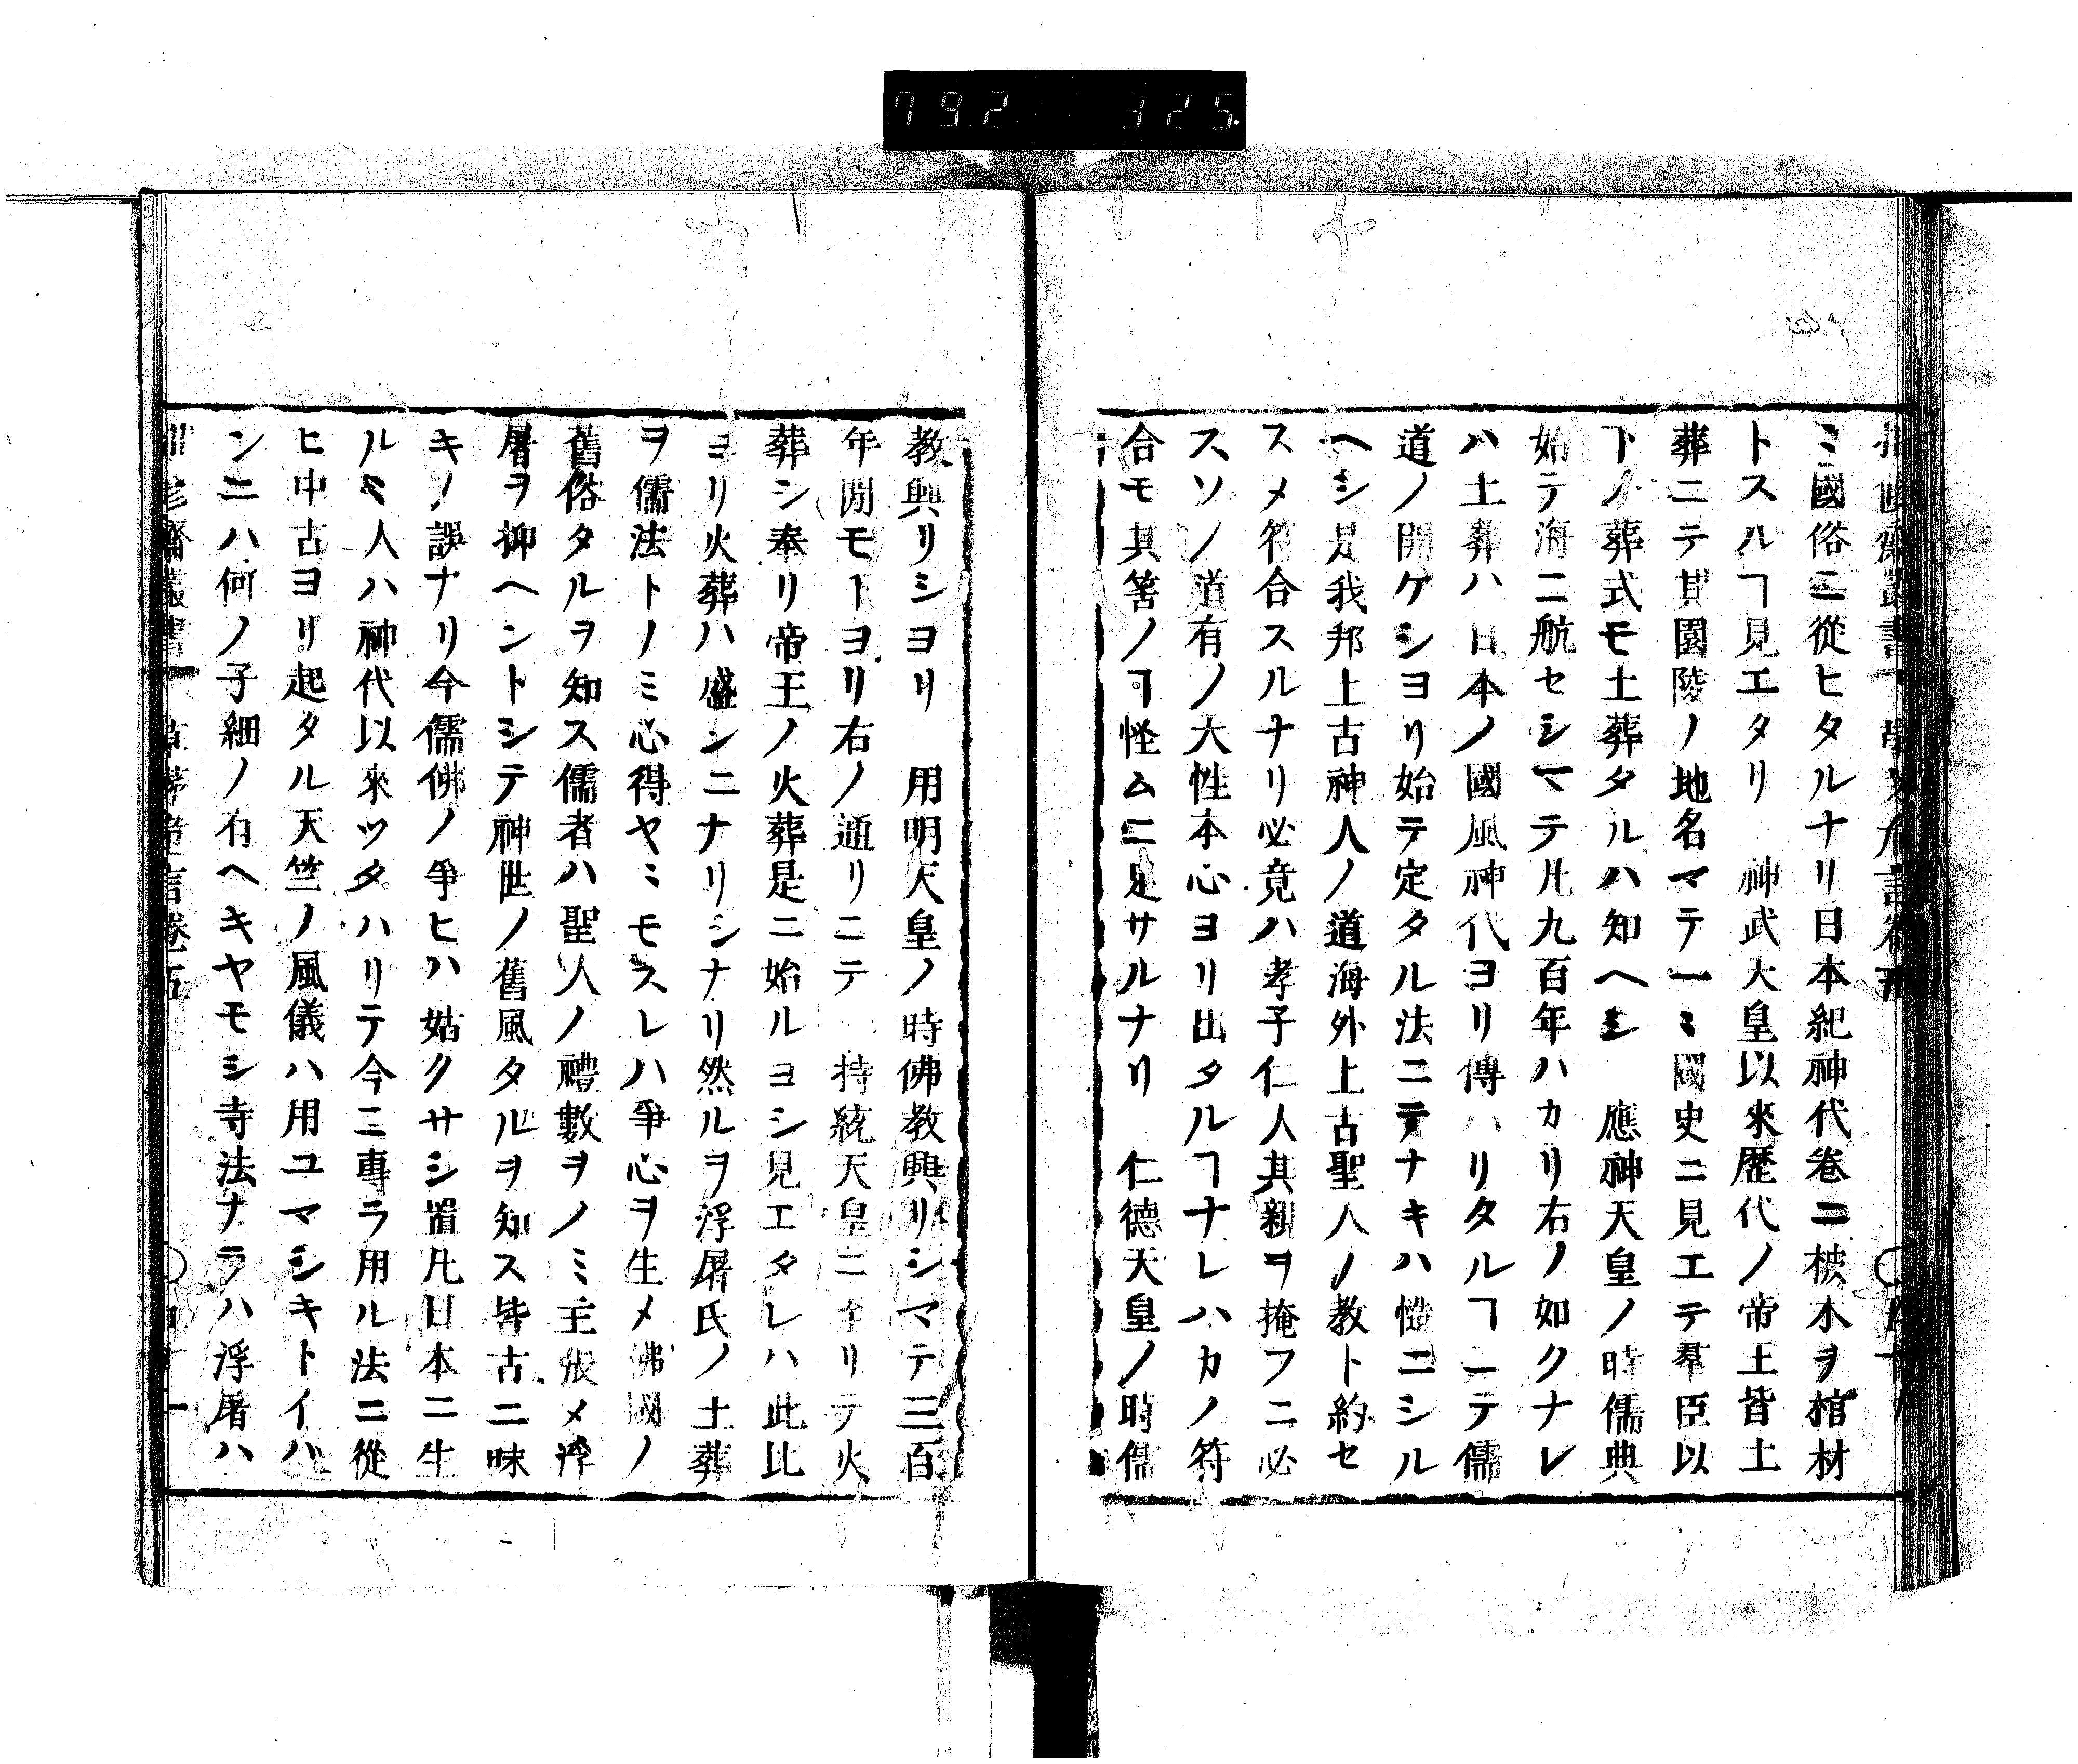 792 325
ミ國俗ニ從ヒタルナリ日本紀神代卷ニ柀木ヲ棺材
トスルヿ見エタリ　神武天皇以來歷代ノ帝王皆土
葬ニテ其園陵ノ地名マテ一ミ國史ニ見エテ羣臣以
下ノ葬式モ土葬タルハ知ヘシ　應神天皇ノ時儒典
始テ海ニ航セシマテ凡九百年ハカリ右ノ如クナレ
ハ土葬ハ日本ノ國風神代ヨリ傳ハリタルヿニテ儒
道ノ開ケシヨリ始テ定タル法ニテナキハ慥ニシル
ヘシ是我邦上古神人ノ道海外上古聖人ノ教ト約セ
スメ符合スルナリ必竟ハ孝子仁人其親ヲ掩フニ必
スソノ道有ノ大性本心ヨリ出タルヿナレハカノ符
合モ其筈ノヿ怪ムニ足サルナリ　仁德天皇ノ時儒
教興リシヨリ　用明天皇ノ時佛教興リシマテ三百
年閒モトヨリ右ノ通リニテ　持統天皇ニ至リテ火
葬シ奉リ帝王ノ火葬是ニ始ルヨシ見エタレハ此比
ヨリ火葬ハ盛ンニナリシナリ然ルヲ浮屠氏ノ土葬
ヲ儒法トノミ心得ヤミモスレハ爭心ヲ生メ佛國ノ
舊俗タルヲ知ス儒者ハ聖人ノ禮數ヲノミ主張メ浮
屠ヲ抑ヘントシテ神世ノ舊風タルヲ知ス皆古ニ昧
キノ誤ナリ今儒佛ノ爭ヒハ姑クサシ置凡日本ニ生
ルミ人ハ神代以來ツタハリテ今ニ專ラ用ル法ニ從
ヒ中古ヨリ起タル天竺ノ風儀ハ用ユマシキトイハ
ンニハ何ノ子細ノ有ヘキヤモシ寺法ナラハ浮屠ハ